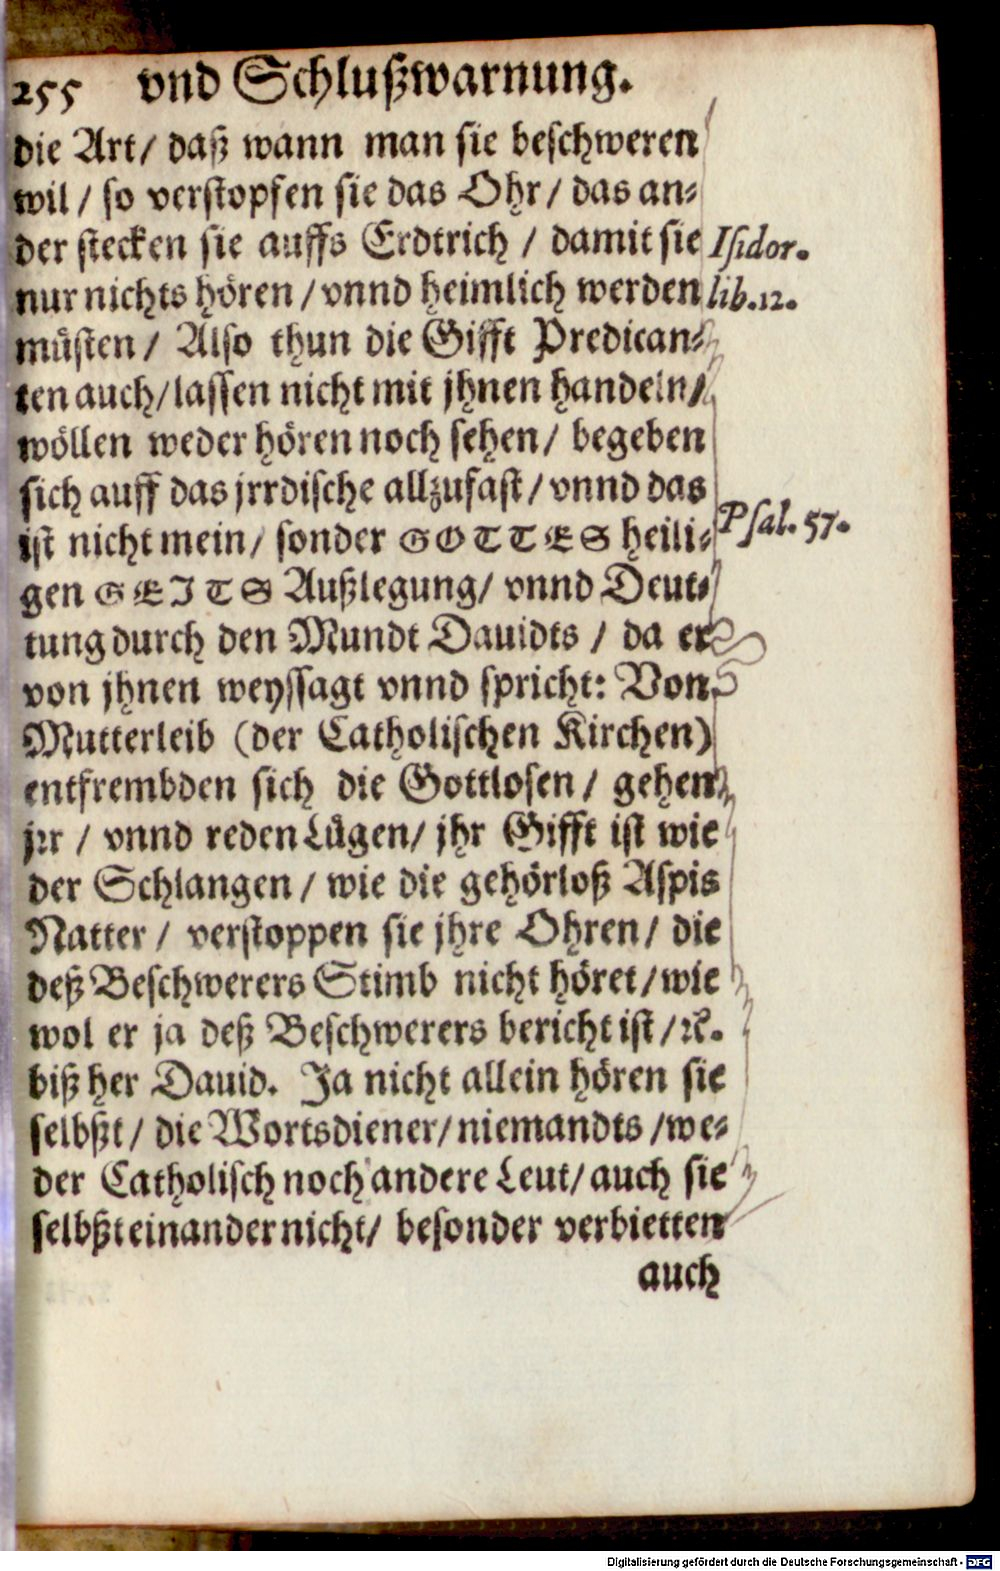 255 vnd Schlußwarnung.
die Art/ daß wann man sie beschweren
wil / so verstopfen sie das Ohr/ das an-
der stecken sie auffs Erdtrich / damit sie
Isidor.
nur nichts hören /vnnd heimlich werden
lib.12.
müsten / Also thun die Gifft Predican-
ten auch/lassen nicht mit jhnen handeln/
wöllen weder hören noch sehen/ begeben
sich auff das jrrdische allzufast/vnnd das
ist nicht mein/ sonder GOTTES heili-
Psal. 57.
gen GEITS Außlegung/ vnnd Deut-
tung durch den Mundt Dauidts / da er
von jhnen weyssagt vnnd spricht: Von
Mutterleib (der Catholischen Kirchen)
entfrembden sich die Gottlosen/ gehen
jrr / vnnd reden Lügen/ jhr Gifft ist wie
der Schlangen / wie die gehörloß Aspis
Natter / verstoppen sie jhre Ohren/ die
deß Beschwerers Stimb nicht höret/wie
wol er ja deß Beschwerers bericht ist /ꝛc.
biß her Dauid. Ja nicht allein hören sie
selbßt/ die Wortsdiener/niemandts /we-
der Catholisch noch andere Leut/ auch sie
selbßt einander nicht/ besonder verbietten
auch
Digitalisierung gefördert durch die Deutsche Forschungsgemeinschaft - DFG